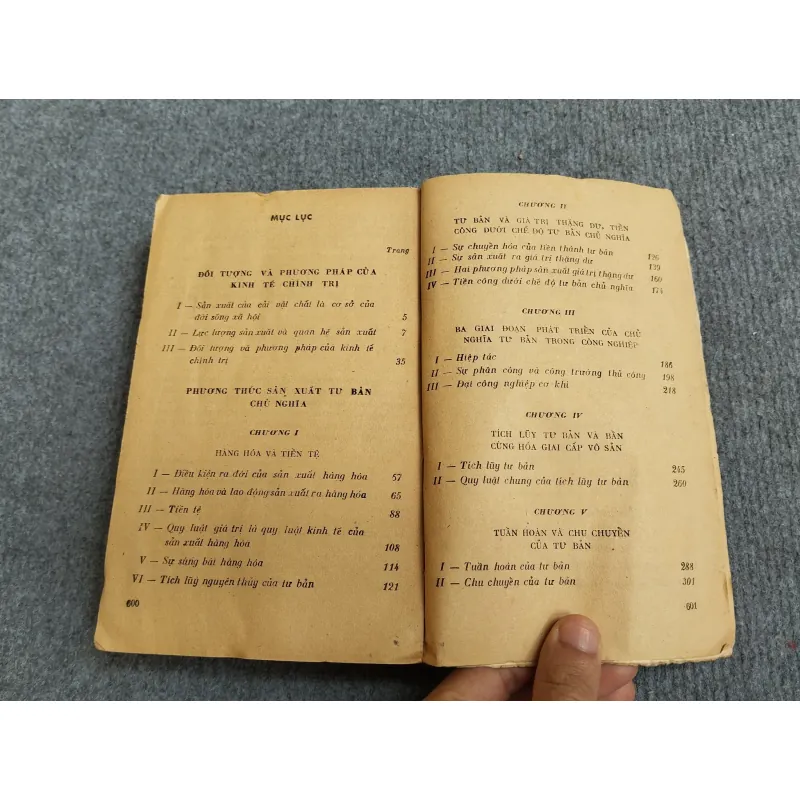 MỤC LỤC
Trang
ĐỐI TƯỢNG VÀ PHƯƠNG PHÁP CỦA
KINH TẾ CHÍNH TRỊ
I — Sản xuất của cải vật chất là cơ sở của
đời sống xã hội 5
II — Lực lượng sản xuất và quan hệ sản xuất 7
III — Đối tượng và phương pháp của kinh tế
chính trị 35
PHƯƠNG THỨC SẢN XUẤT TƯ BẢN
CHỦ NGHĨA
CHƯƠNG I
HÀNG HÓA VÀ TIỀN TỆ
I — Điều kiện ra đời của sản xuất hàng hóa 57
II — Hàng hóa và lao động sản xuất ra hàng hóa 65
III — Tiền tệ 88
IV — Quy luật giá trị là quy luật kinh tế của
sản xuất hàng hóa 108
V — Sự sùng bái hàng hóa 114
VI — Tích lũy nguyên thủy của tư bản 121
600
CHƯƠNG II
TƯ BẢN VÀ GIÁ TRỊ THẶNG DƯ, TIỀN
CÔNG DƯỚI CHẾ ĐỘ TƯ BẢN CHỦ NGHĨA
I — Sự chuyển hóa của tiền thành tư bản 126
II — Sự sản xuất ra giá trị thặng dư 139
III — Hai phương pháp sản xuất giá trị thặng dư 160
IV — Tiền công dưới chế độ tư bản chủ nghĩa 174
CHƯƠNG III
BA GIAI ĐOẠN PHÁT TRIỂN CỦA CHỦ
NGHĨA TƯ BẢN TRONG CÔNG NGHIỆP
I — Hiệp tác 186
II — Sự phân công và công trường thủ công 198
III — Đại công nghiệp cơ khí 218
CHƯƠNG IV
TÍCH LŨY TƯ BẢN VÀ BẦN
CÙNG HÓA GIAI CẤP VÔ SẢN
I — Tích lũy tư bản 245
II — Quy luật chung của tích lũy tư bản 260
CHƯƠNG V
TUẦN HOÀN VÀ CHU CHUYỂN
CỦA TƯ BẢN
I — Tuần hoàn của tư bản 288
II — Chu chuyển của tư bản 301
601